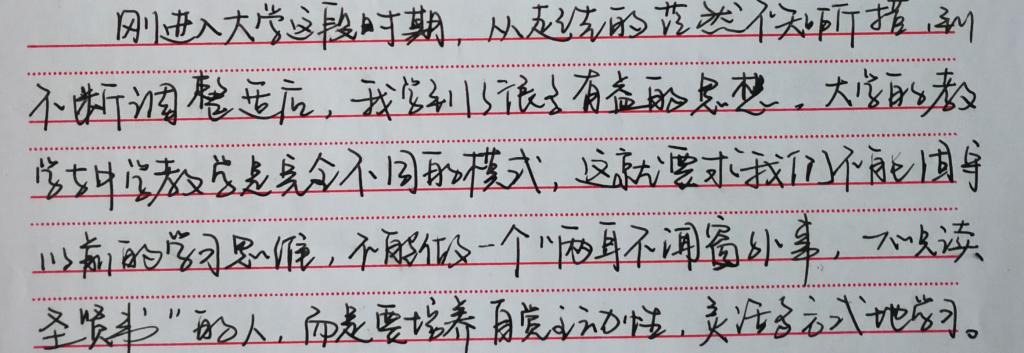 刚进入大学这段时期，从起先的茫然不知所措，到
不断调整适应，我学到了很多有益的思想。大学的教
学与中学教学是完全不同的模式，这就要求我们不能固守
以前的学习思维，不能做一个"两耳不闻窗外事，一心只读
圣贤书"的人，而是要培养自觉主动性，灵活多方式地学习。